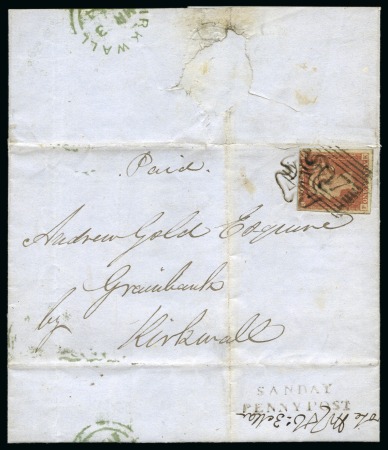 KIRKWALL
MR 3
Paid
Andrew Gold Esquire
Grainbank
by
Kirkwall
SANDAY
PENNY POST